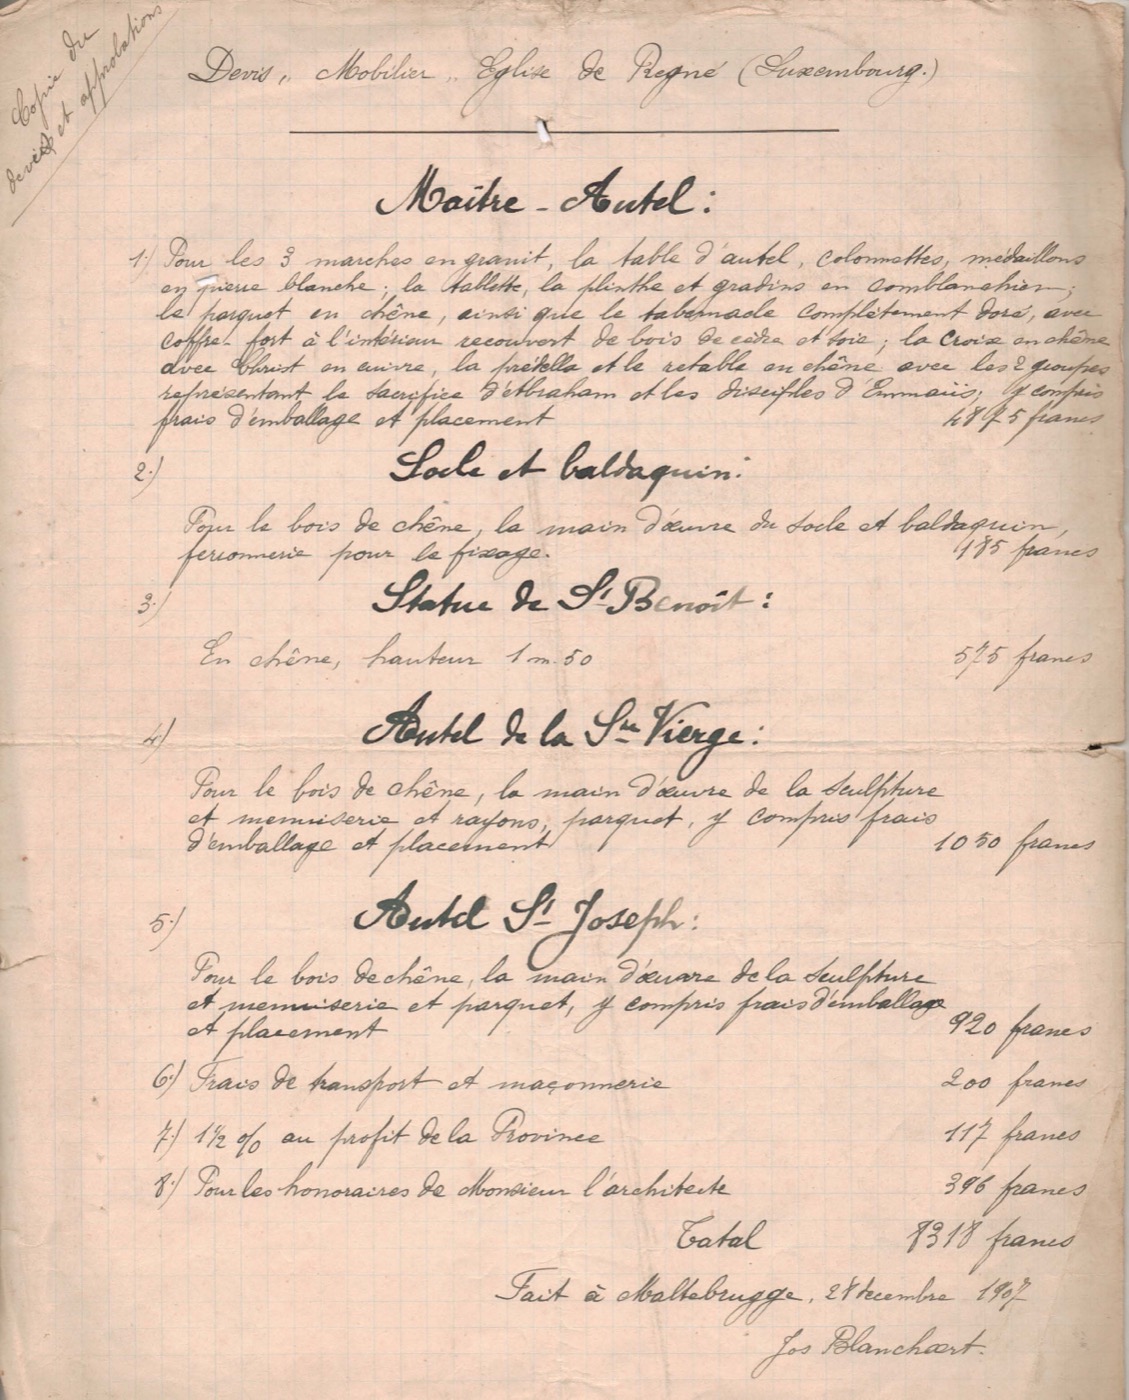 Copie du
devis et approbations
Devis „ Mobilier „ Eglise de Regné (Luxembourg.)
Maître - Autel :
1) Pour les 3 marches en granit, la table d'autel, colonnettes, médaillons
en pierre blanche ; la tablette, la plinthe et gradins en comblanchien ;
le parquet en chêne, ainsi que le tabernacle complètement doré, avec
coffre-fort à l'intérieur recouvert de bois de cèdre et soie ; la croix en chêne
avec Christ en cuivre, la prédella et le retable en chêne avec les 2 groupes
représentant le sacrifice d'Abraham et les disciples d'Emmaüs; y compris
frais d'emballage et placement 4875 francs
2.) Socle et baldaquin:
Pour le bois de chêne, la main d'œuvre du socle et baldaquin,
ferronnerie pour le fixage. 185 francs
3.) Statue de St Benoît :
En chêne, hauteur 1 m. 50 575 francs
4) Autel de la Ste Vierge :
Pour le bois de chêne, la main d'œuvre de la sculpture
et menuiserie et rayons, parquet, y compris frais
d'emballage et placement 1050 francs
5.) Autel St Joseph :
Pour le bois de chêne, la main d'œuvre de la sculpture
et menuiserie et parquet, y compris frais d'emballage
et placement 920 francs
6.) Frais de transport et maçonnerie 200 francs
7.) 1½ % au profit de la Province 117 francs
8.) Pour les honoraires de Monsieur l'architecte 396 francs
Total 8318 francs
Fait à Maltebrugge, 28 décembre 1907
Jos Blanchaert.